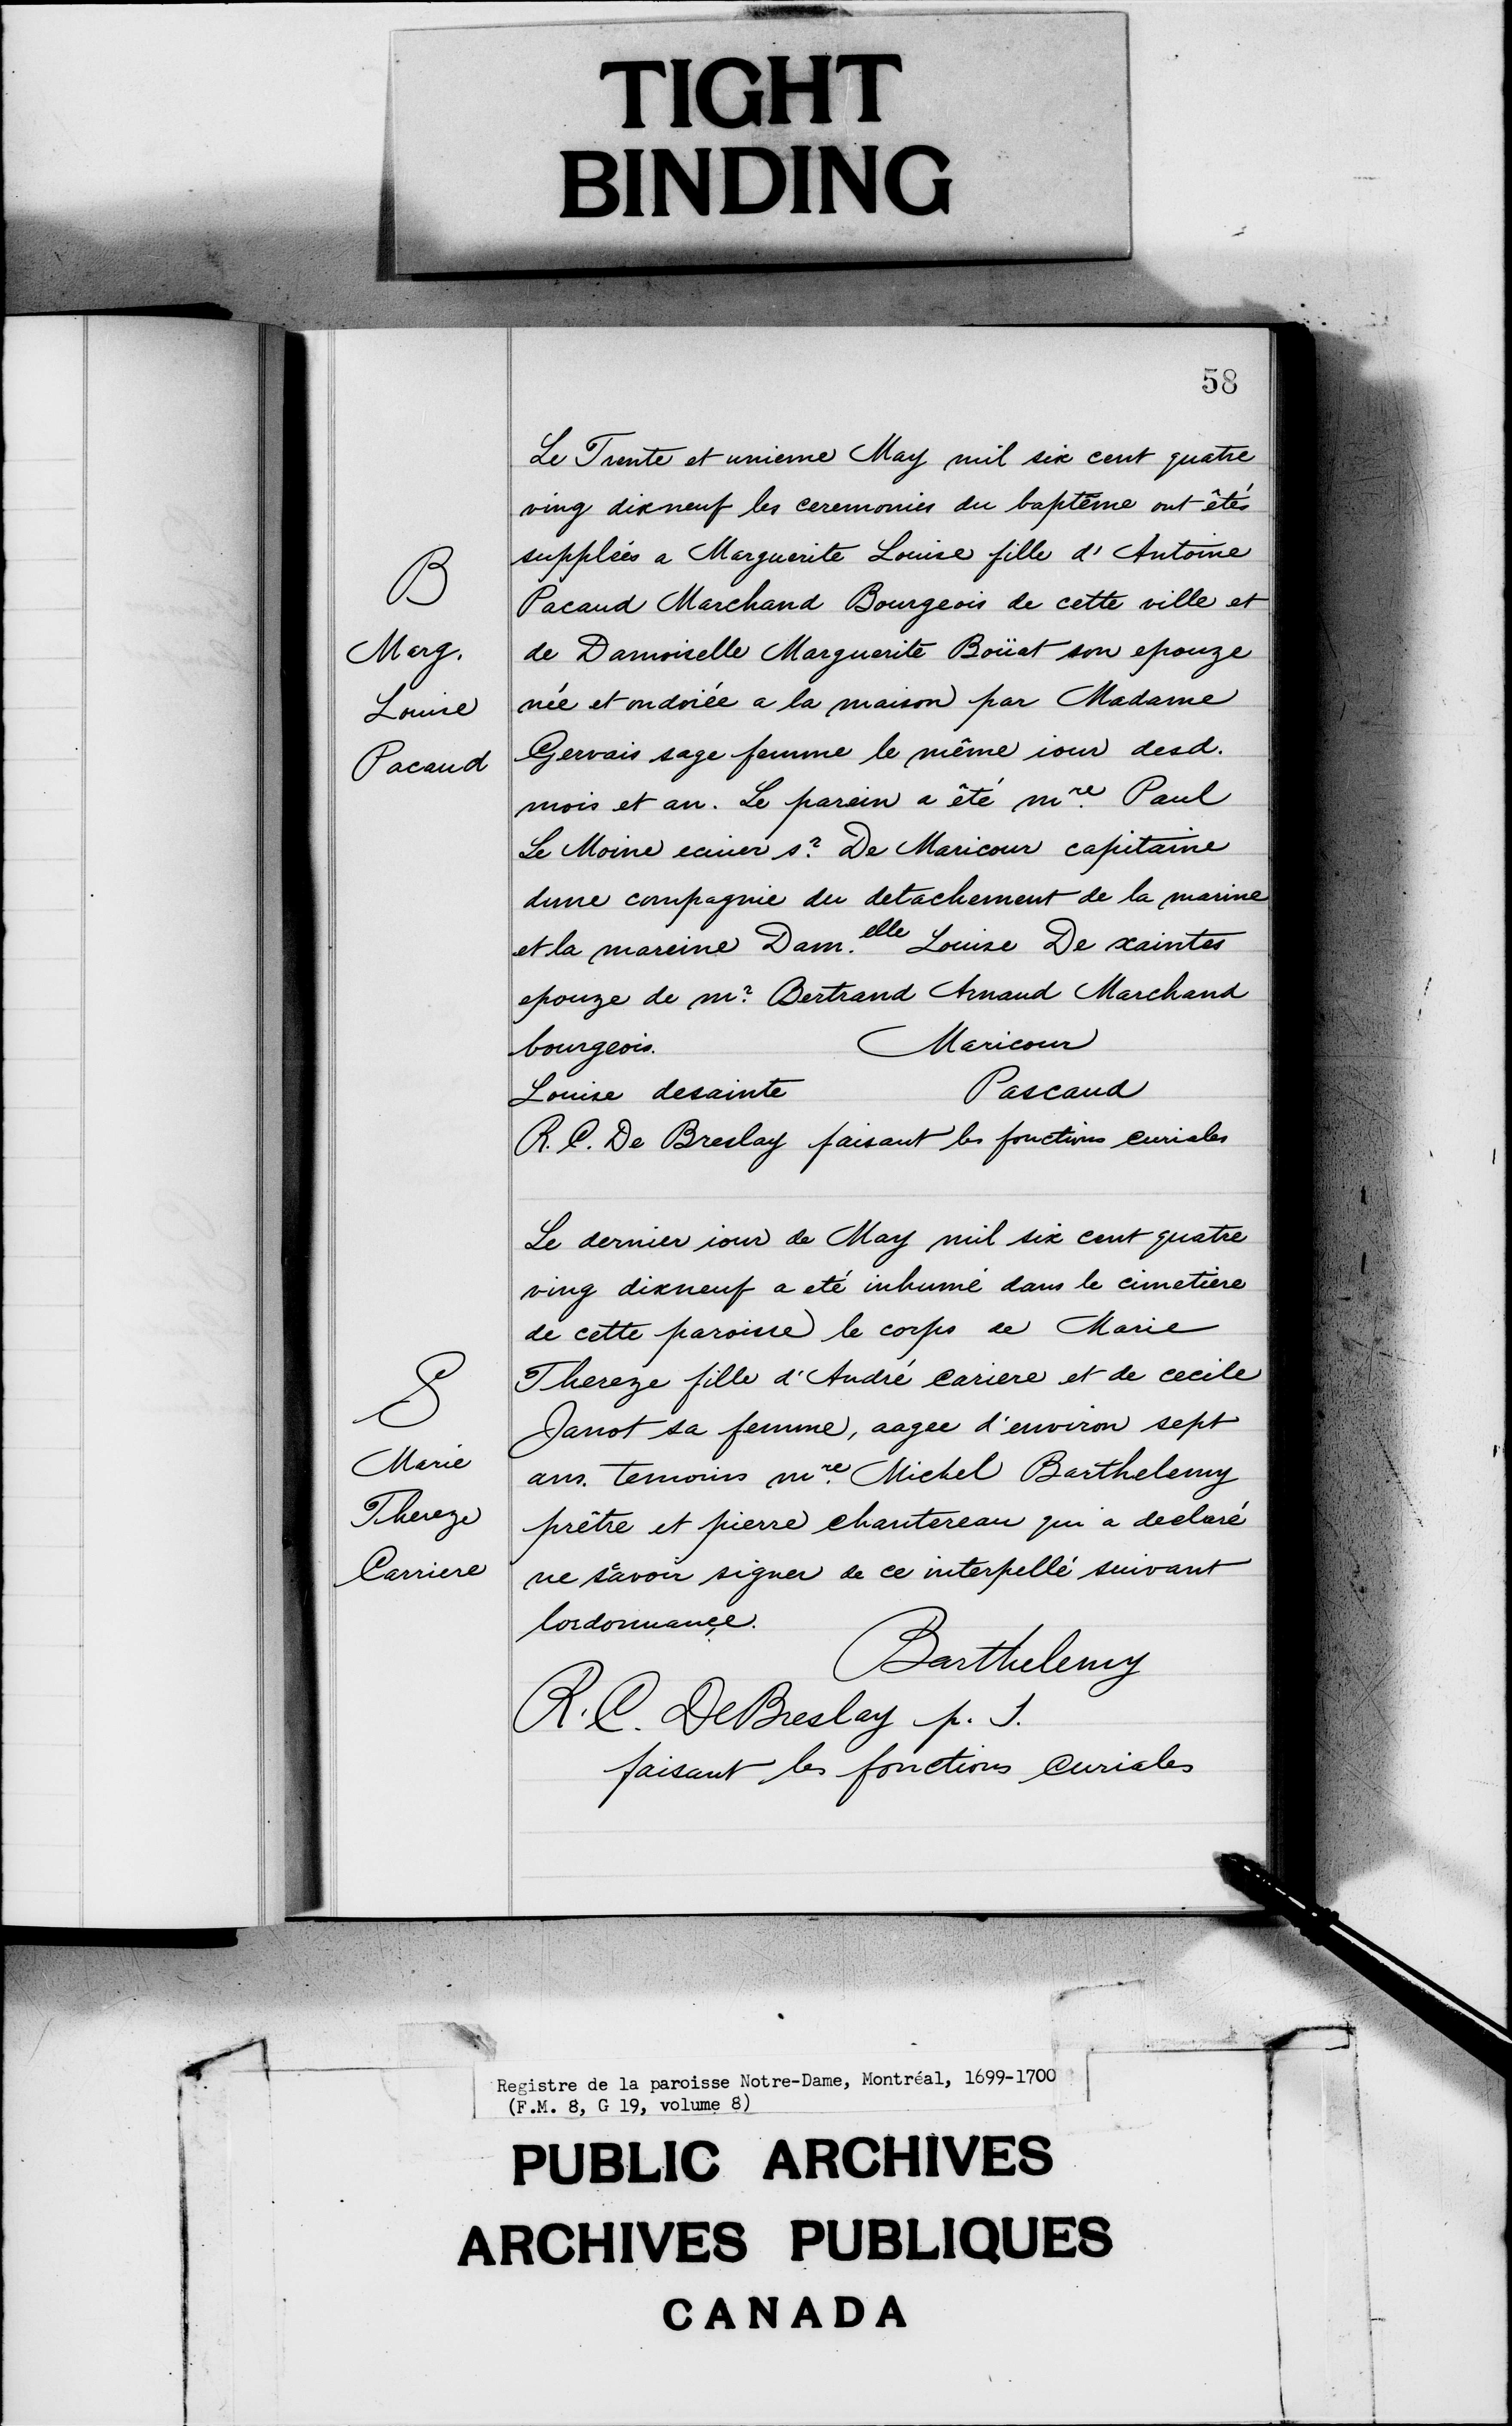 TIGHT
BINDING
58
Le Trente et unieme May mil six cent quatre
ving dixneuf les ceremonies du baptême ont êtés
suppleés a Marguerite Louise fille d' Antoine
Pacaud Marchand Bourgeois de cette ville et
de Damoiselle Marguerite Boüat son epouze
née et ondoiée a la maison par Madame
Gervais sage femme le même iour desd.
mois et an. Le parein a êté mre. Paul
Le Moine ecuier sr. De Maricour capitaine
dune compagnie du detachement de la marine
et la mareine Dam.elle Louise De xaintes
epouze de mr. Bertrand Arnaud Marchand
bourgeois. Maricour
Louise desainte Pascaud
R. C. De Breslay faisant les fonctions curiales
B
Marg.
Louise
Pacaud
Le dernier iour de May mil six cent quatre
ving dixneuf a eté inhumé dans le cimetiere
de cette paroisse le corps de Marie
Thereze fille d'André cariere et de cecile
Janot sa femme, aagee d'environ sept
ans. temoins mre. Michel Barthelemy
prêtre et pierre chantereau qui a declaré
ne savoir signer de ce interpellé suivant
lordonnançe.
Barthelemy
R. C. DeBreslay p. J.
faisant les fonctions curiales
S
Marie
Thereze
Carriere
Registre de la paroisse Notre-Dame, Montréal, 1699-1700
(F.M. 8, G 19, volume 8)
PUBLIC ARCHIVES
ARCHIVES PUBLIQUES
CANADA